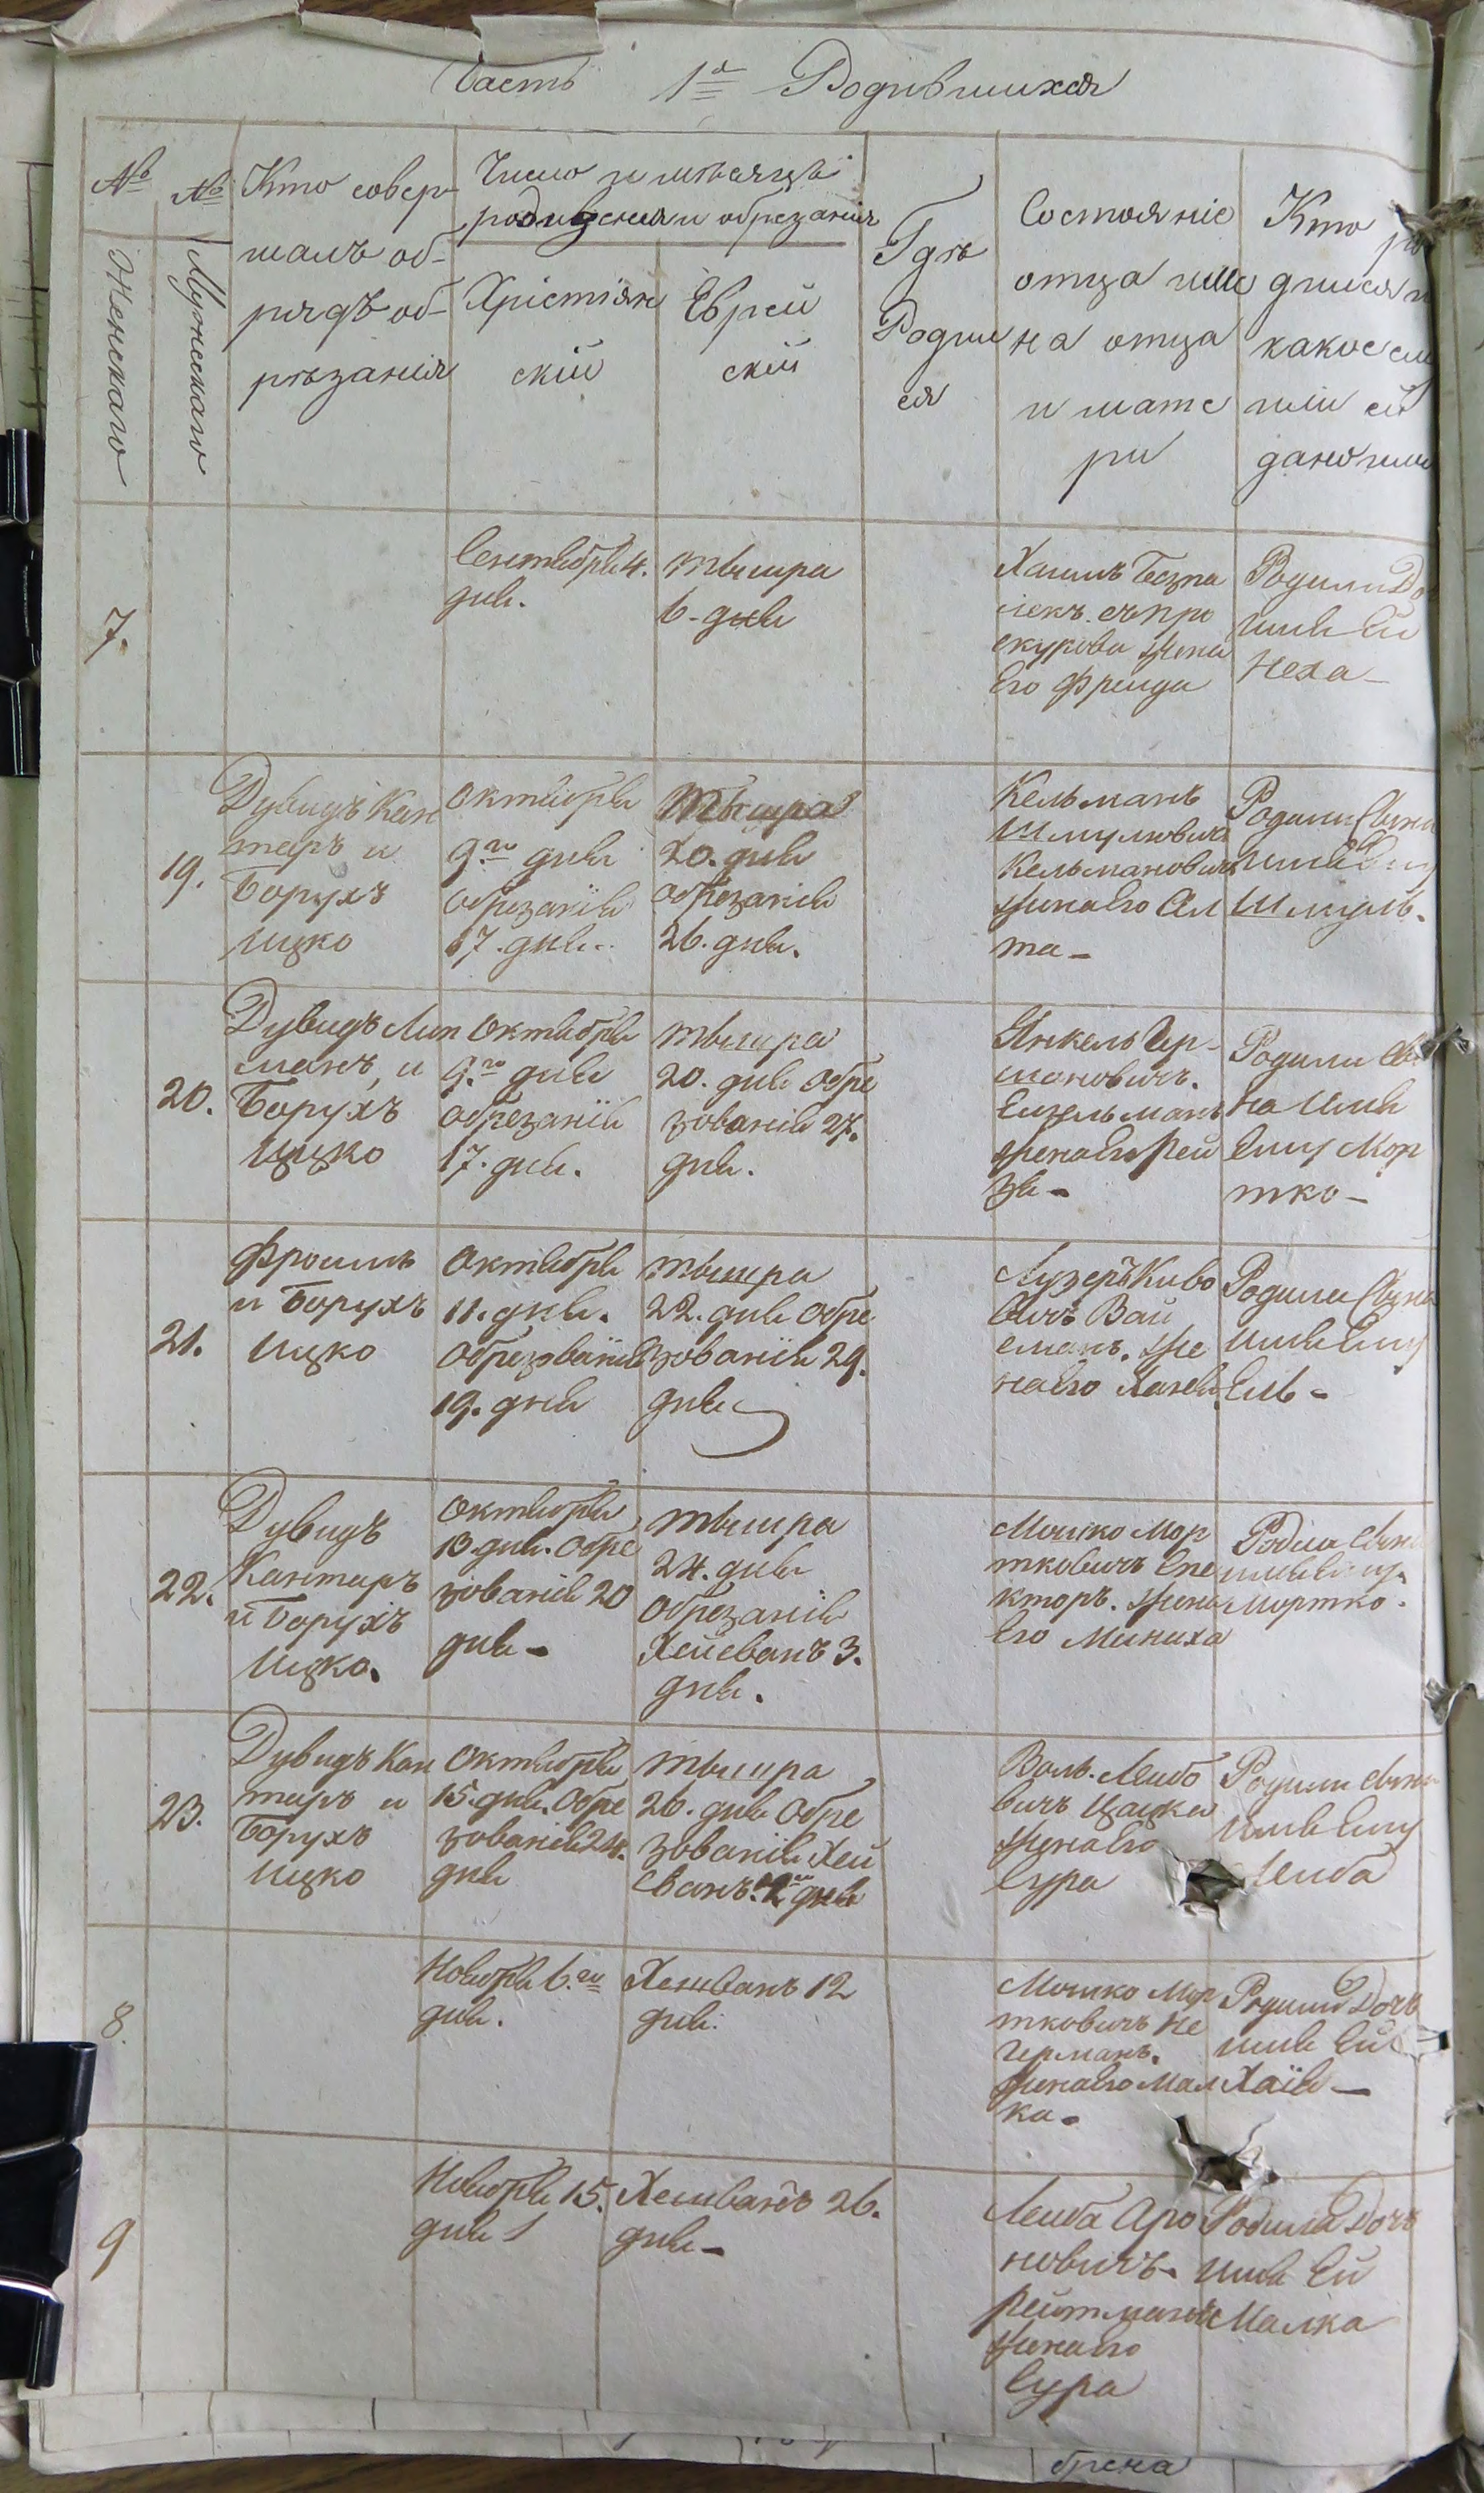 Часть 1я Родившихся
№
Женскаго
№
Мужескаго
Кто совер
шалъ об-
рядъ об-
рѣзанія
Число и мѣсяцъ
рождения и обрезанія
Хрістіян
скій
Еврей
скій
Гдѣ
Родил
ся
Состояніе
отца име
на отца
и мате
ри
Кто ро
дился и
какое ем
или ей
дано имя
7.
Сентября 4.
дня.
тышра
6 - дня
Хаимъ
съ Про
скурова жена
Его Фрейда
Родили До
имя Ей
Неха -
19.
Дувидъ Кан
таръ и
Борухъ
Ицко
Октября
9.го дня
обрезанія
17. дня.
Тышра
20. дня
обрезанія
26. дня.
Кельманъ
Шмулювичъ
Кельмановичъ
жена его Ал
та -
Родили Сына
имя Ему
Шмуль.
20.
Дувидъ Лип
манъ, и
Борухъ
Ицко
Октября
9.го дня
обрезанія
17. дня.
тышра
20. дня обре
зованія 27.
дня.
Янкель Гер-
шоновичъ.
Енгельманъ
жена Его Рей
зя -
Родили Сы
на Имя
Ему Мор
тко -
21.
Фроимъ
и Борухъ
Ицко
Октября
11. дня.
Обрезованія
19. дня
тышра
22. дня обре
зованія 29.
дня
Лузеръ Киво
вичъ Вай
сманъ. Же
на его Ханя.
Родили Сына
имя Ему
Ель -
22.
Дувидъ
Кантаръ
и Борухъ
Ицко.
Октября
13. дня. Обре
зованія 20
дня -
тышра
24. дня
Обрезанія
Хейсванъ 3.
дня.
Мошко Мор
тковичъ Спе
кторъ. Жена
Его Миниха
Родила Сына
имя Ему.
Мортко.
23.
Дувидъ Кан
таръ и
Борухъ
Ицко
Октября
15. дня. Обре
зованія 24.
дня
тышра
26. дня Обре
зованія Хей
сванъ. дня
Воль. Лейбо
вичъ Цацкес
жена его
Сура
Родили Сына
имя Ему
Лейба
8.
Ноября 6.го
дня.
Хешванъ 12
дня.
Мошко Мор
тковичъ Не
германъ.
Жена его Мал
ка.
Родили Дочь
имя Ей
Хаія -
9
Ноября 15.
дня
Хешванъ 26.
дня -
Лейба Аро
новичъ.
Рейтманъ
Жена его
Сура
Родила Дочь
имя Ей
Малка
брена